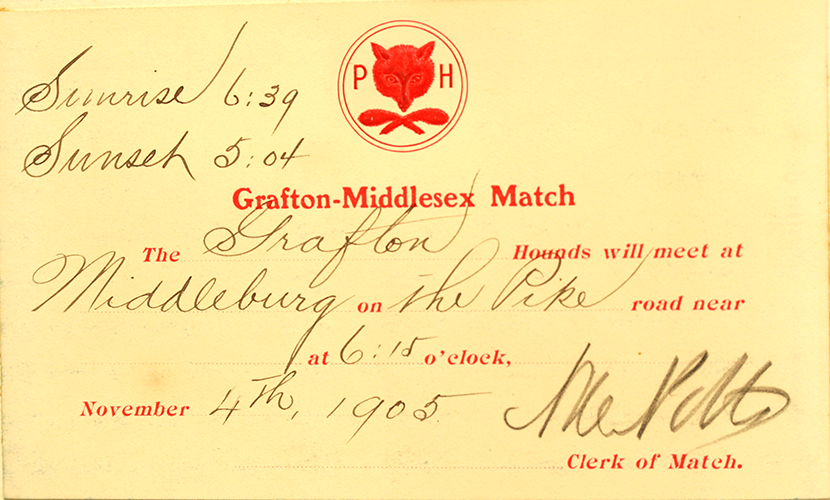 Sunrise 6:39
Sunset 5:04
P H
Grafton-Middlesex Match
The Grafton Hounds will meet at
Middleburg on the Pike road near
at 6:15 o'clock,
November 4th, 1905
Potts
Clerk of Match.